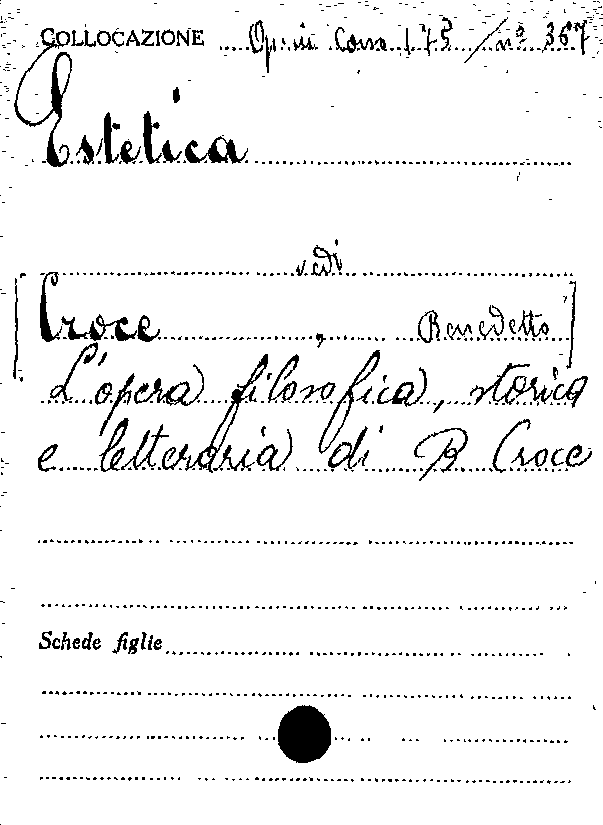 COLLOCAZIONE Op. in Cons 175 / nº 367
Estetica
vedi
[Croce, Benedetto]
L'opera filosofica, storica
e letteraria di B Croce
Schede figlie